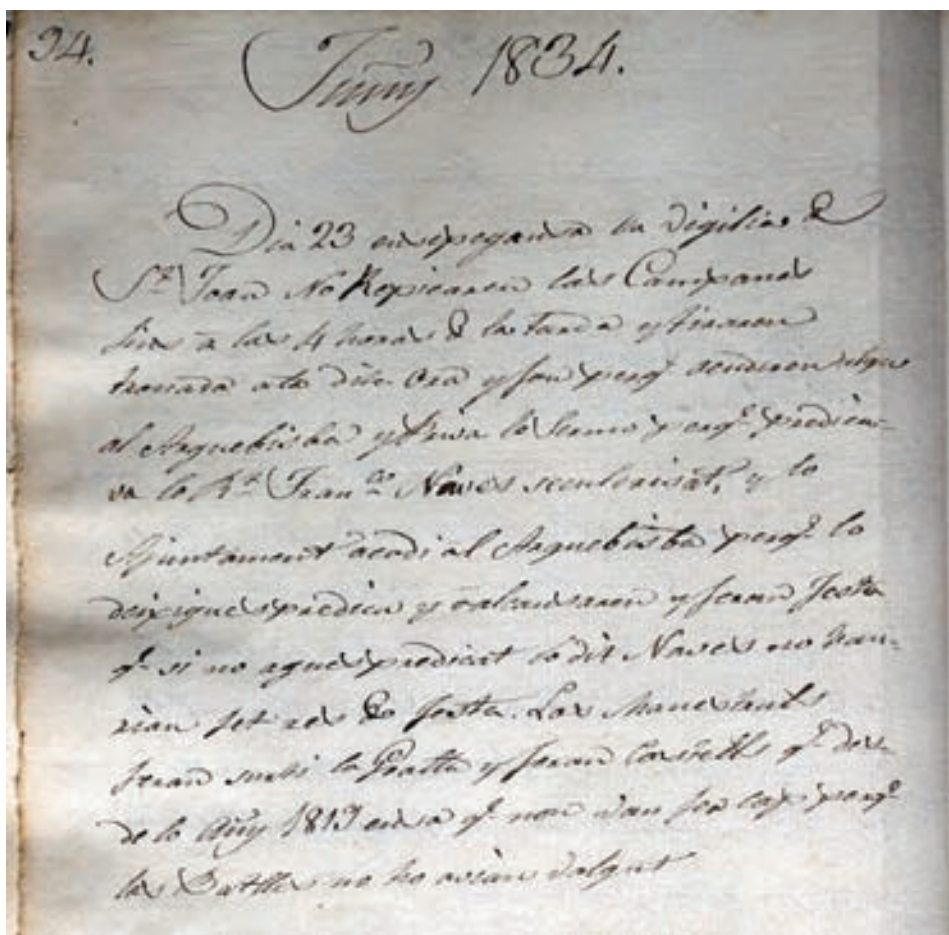 94.
Juny 1834.
Dia 23 en espeganza la Vigilia de
St. Joan No Repicaren las Campanas
fins a las 4 horas de la tarda y tiraren
tronada a la dita Ora y fou perq. acudiren
al Arquebisba y priva lo Sermo perq. predica-
va lo Rt. Franco. Naves secularisat, y lo
Ajuntament acudi al Arquebisba perq. lo
deixigues predica y y feren festa
q. si no agues predicat lo dit Naves no hau-
rian fet res de festa. Los Manestrals
feran surti la Gralla y feran Castells q. des-
de lo Añy 1813 en sa q. non van fer cap perq.
los Batlles no ho avian Volgut